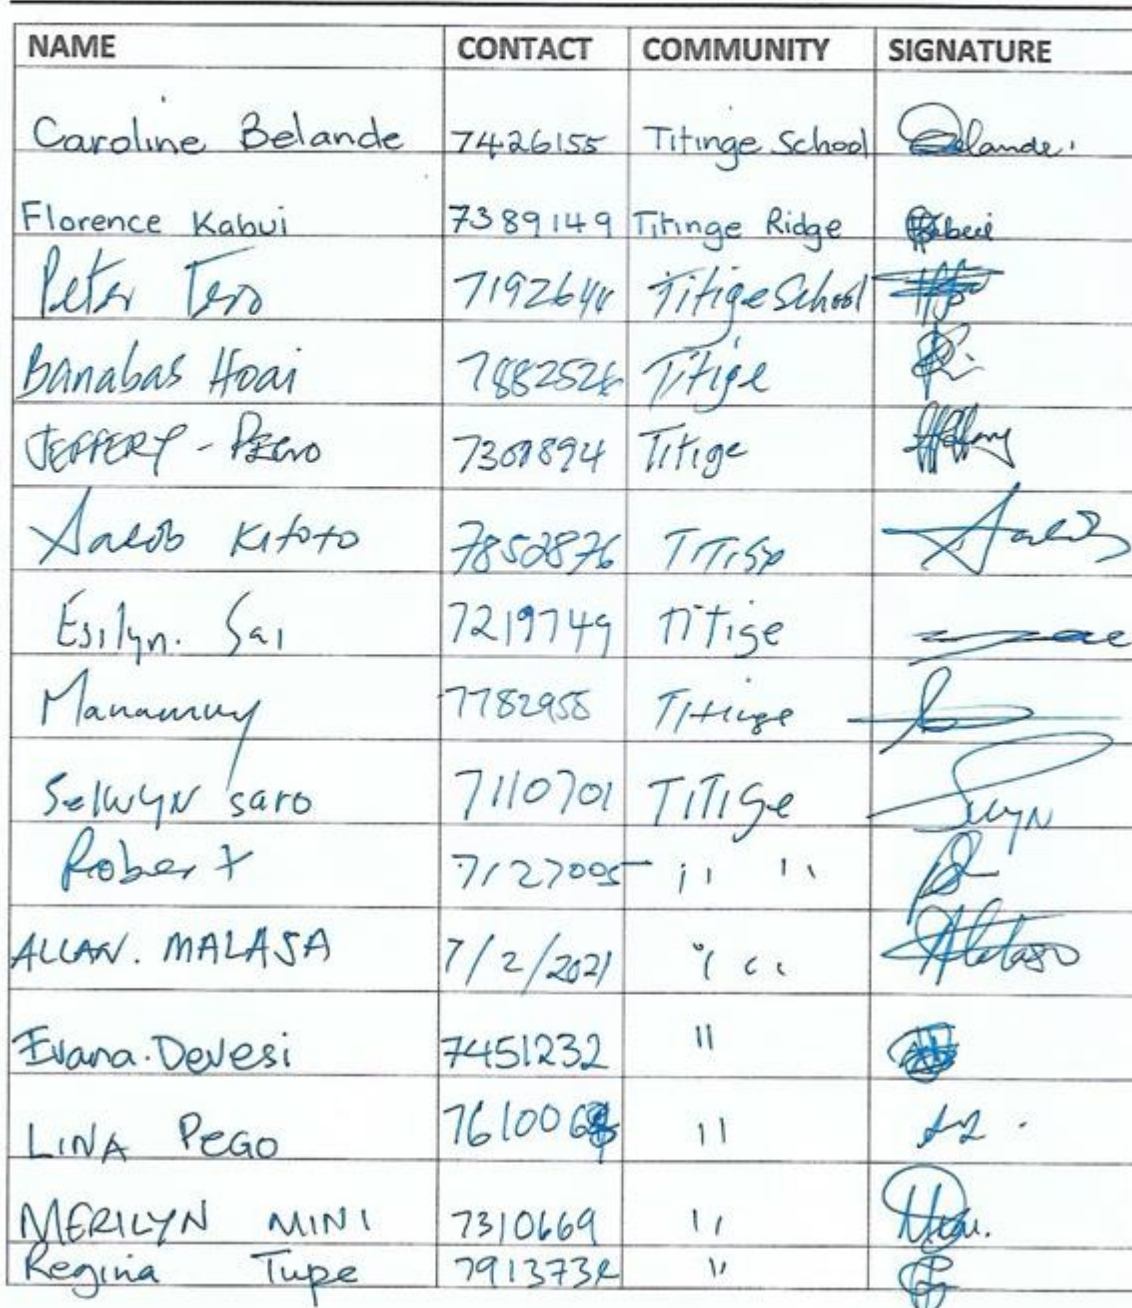 NAME CONTACT COMMUNITY SIGNATURE
Caroline Belande 7426155 Titinge School Belande.
Florence Kabui 7389149 Titinge Ridge
Peter Tero 7192644 Titige School
Banabas Hoai 7882526 Titige
JEFFERY - 7301894 Titige
Kitoto 7852876 TiTige
Esilyn. Sai 7219749 TiTige
7782955 Titinge
Selwyn saro 7110701 TiTiGe Selwyn
Robert 7127005 " "
ALLAN. MALASA 7/2/2021 " "
Evana. Devesi 7451232 "
LINA PEGO "
MERILYN MINI 7310669 "
Regina Tupe 7913732 "